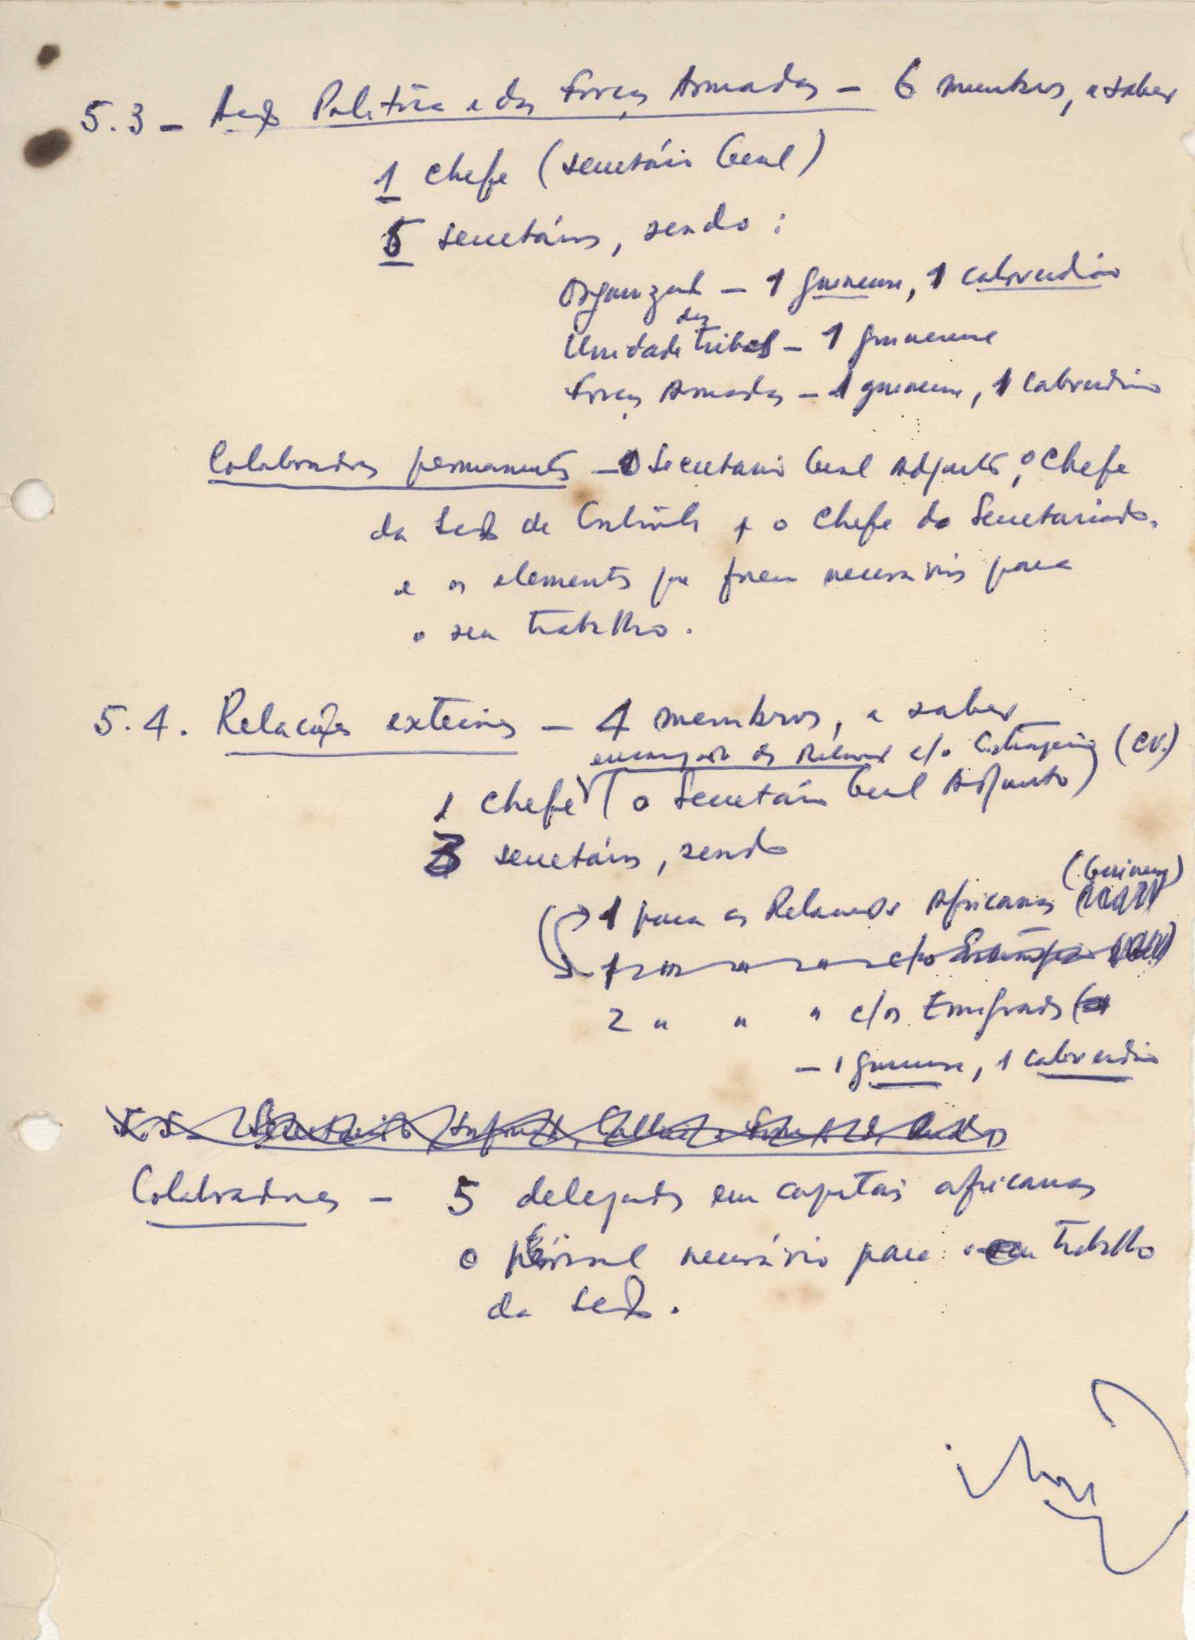 5.3 - Acção Política e das Forças Armadas - 6 membros, a saber
1 chefe (Secretário Geral)
5 secretários, sendo:
Organização - 1 guineense, 1 caboverdiano
das
Unidades tribais - 1 guineense
Forças Armadas - 1 guineense, 1 caboverdiano
Colaboradores permanentes - o Secretário Geral Adjunto, o Chefe
da Secção de Controle, o Chefe do Secretariado,
e os elementos que forem necessários para
o seu trabalho.
5.4. Relações exteriores - 4 membros, a saber
encarregado das Relações c/o Estrangeiro (CV.)
1 chefe (o Secretário Geral Adjunto)
3 secretários, sendo
(Guineense)
1 para as Relações Africanas
1 " " " c/o Estrangeiro
2 " " " c/os Emigrados
- 1 guineense, 1 caboverdiano
5.5.
Colaboradores - 5 delegados em capitais africanas
o pessoal necessário para o trabalho
da Secção.